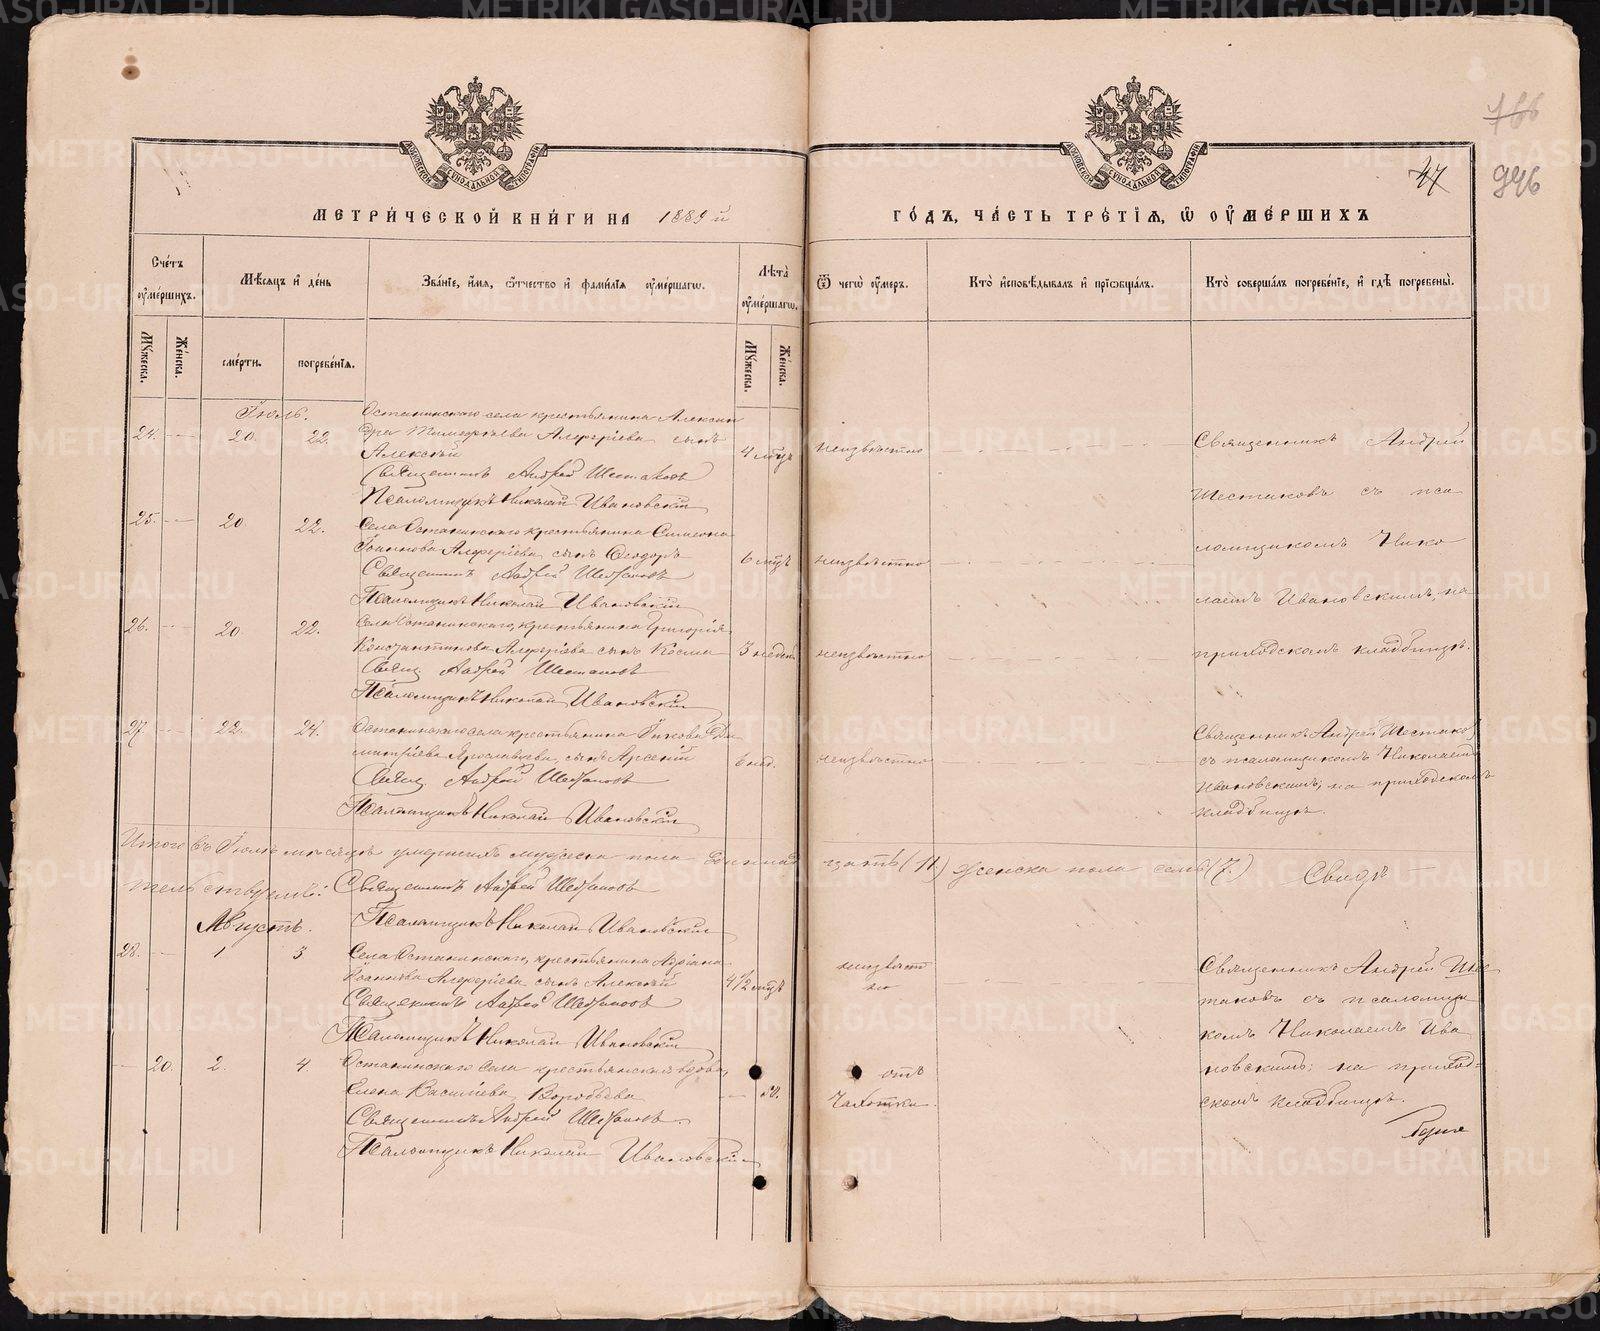 766
946
47
МЕТРИЧЕСКОЙ КНИГИ НА 1889 й
ГОДЪ, ЧАСТЬ ТРЕТІЯ, Ѽ ОУМЕРШИХЪ
Счетъ оумершихъ.
Мѣсяцъ и день
Званіе, имя, ѿчество и фамилія оумершагѡ.
Лѣта оумершагѡ.
Ѿ чегѡ оумеръ.
Кто исповѣдывалъ и пріобщалъ.
Кто совершалъ погребеніе, и гдѣ погребены.
Мужеска.
Женска.
смерти.
погребенія.
Мужеска.
Женска.
Іюль.
Останинскаго села крестьянина Алексан
24. 20. 22. дра Тимофеева Алферіева сынъ
Алексѣй
4 мѣц. неизвѣстно
Священникъ Андрей Шестаковъ
Псаломщикъ Николай Ивановскій
25. 20 22. Села Останинскаго крестьянина Симеона
Іоаннова Алферіева сынъ Ѳеодоръ
6 мѣц. неизвѣстно
Священникъ Андрей Шестаковъ
Псаломщикъ Николай Ивановскій
26. 20 22. Села Останинскаго, крестьянина Григорія
Константинова Алферіева сынъ Косма
3 недѣл. неизвѣстно
Свящ. Андрей Шестаковъ
Псаломщикъ Николай Ивановскій
Священникъ Андрей
Шестаковъ съ пса
ломщикомъ Нико
лаемъ Ивановскимъ, на
приходскомъ кладбищѣ.
27. 22. 24. Останинскаго села крестьянина Іакова Ди
митріева сынъ Арсеній
6 нед. неизвѣстно
Свящ. Андрей Шестаковъ
Псаломщикъ Николай Ивановскій
Священникъ Андрей Шестаковъ
съ псаломщикомъ Николаемъ
Ивановскимъ; на приходскомъ
кладбищѣ.
Итого въ Іюлѣ мѣсяцѣ умершихъ мужеска пола одиннад
цать (11) женска пола семь (7.) Свидѣ
тельствуемъ: Священникъ Андрей Шестаковъ
Псаломщикъ Николай Ивановскій
Августъ.
28. 1 3 Села Останинскаго, крестьянина Адріана
Іоаннова Алферіева сынъ Алексѣй
4 1/2 мѣц. неизвѣст
но
Священникъ Андрей Шестаковъ
Псаломщикъ Николай Ивановскій
20. 2. 4. Останинскаго села крестьянская вдова,
Елена Васильева Воробьева
50. отъ
чахотки.
Священникъ Андрей Шестаковъ.
Псаломщикъ Николай Ивановскій
Священникъ Андрей Шес
таковъ съ псаломщи
комъ Николаемъ Ива
новскимъ; на приход=
скомъ кладбищѣ.
METRIKI.GASO-URAL.RU